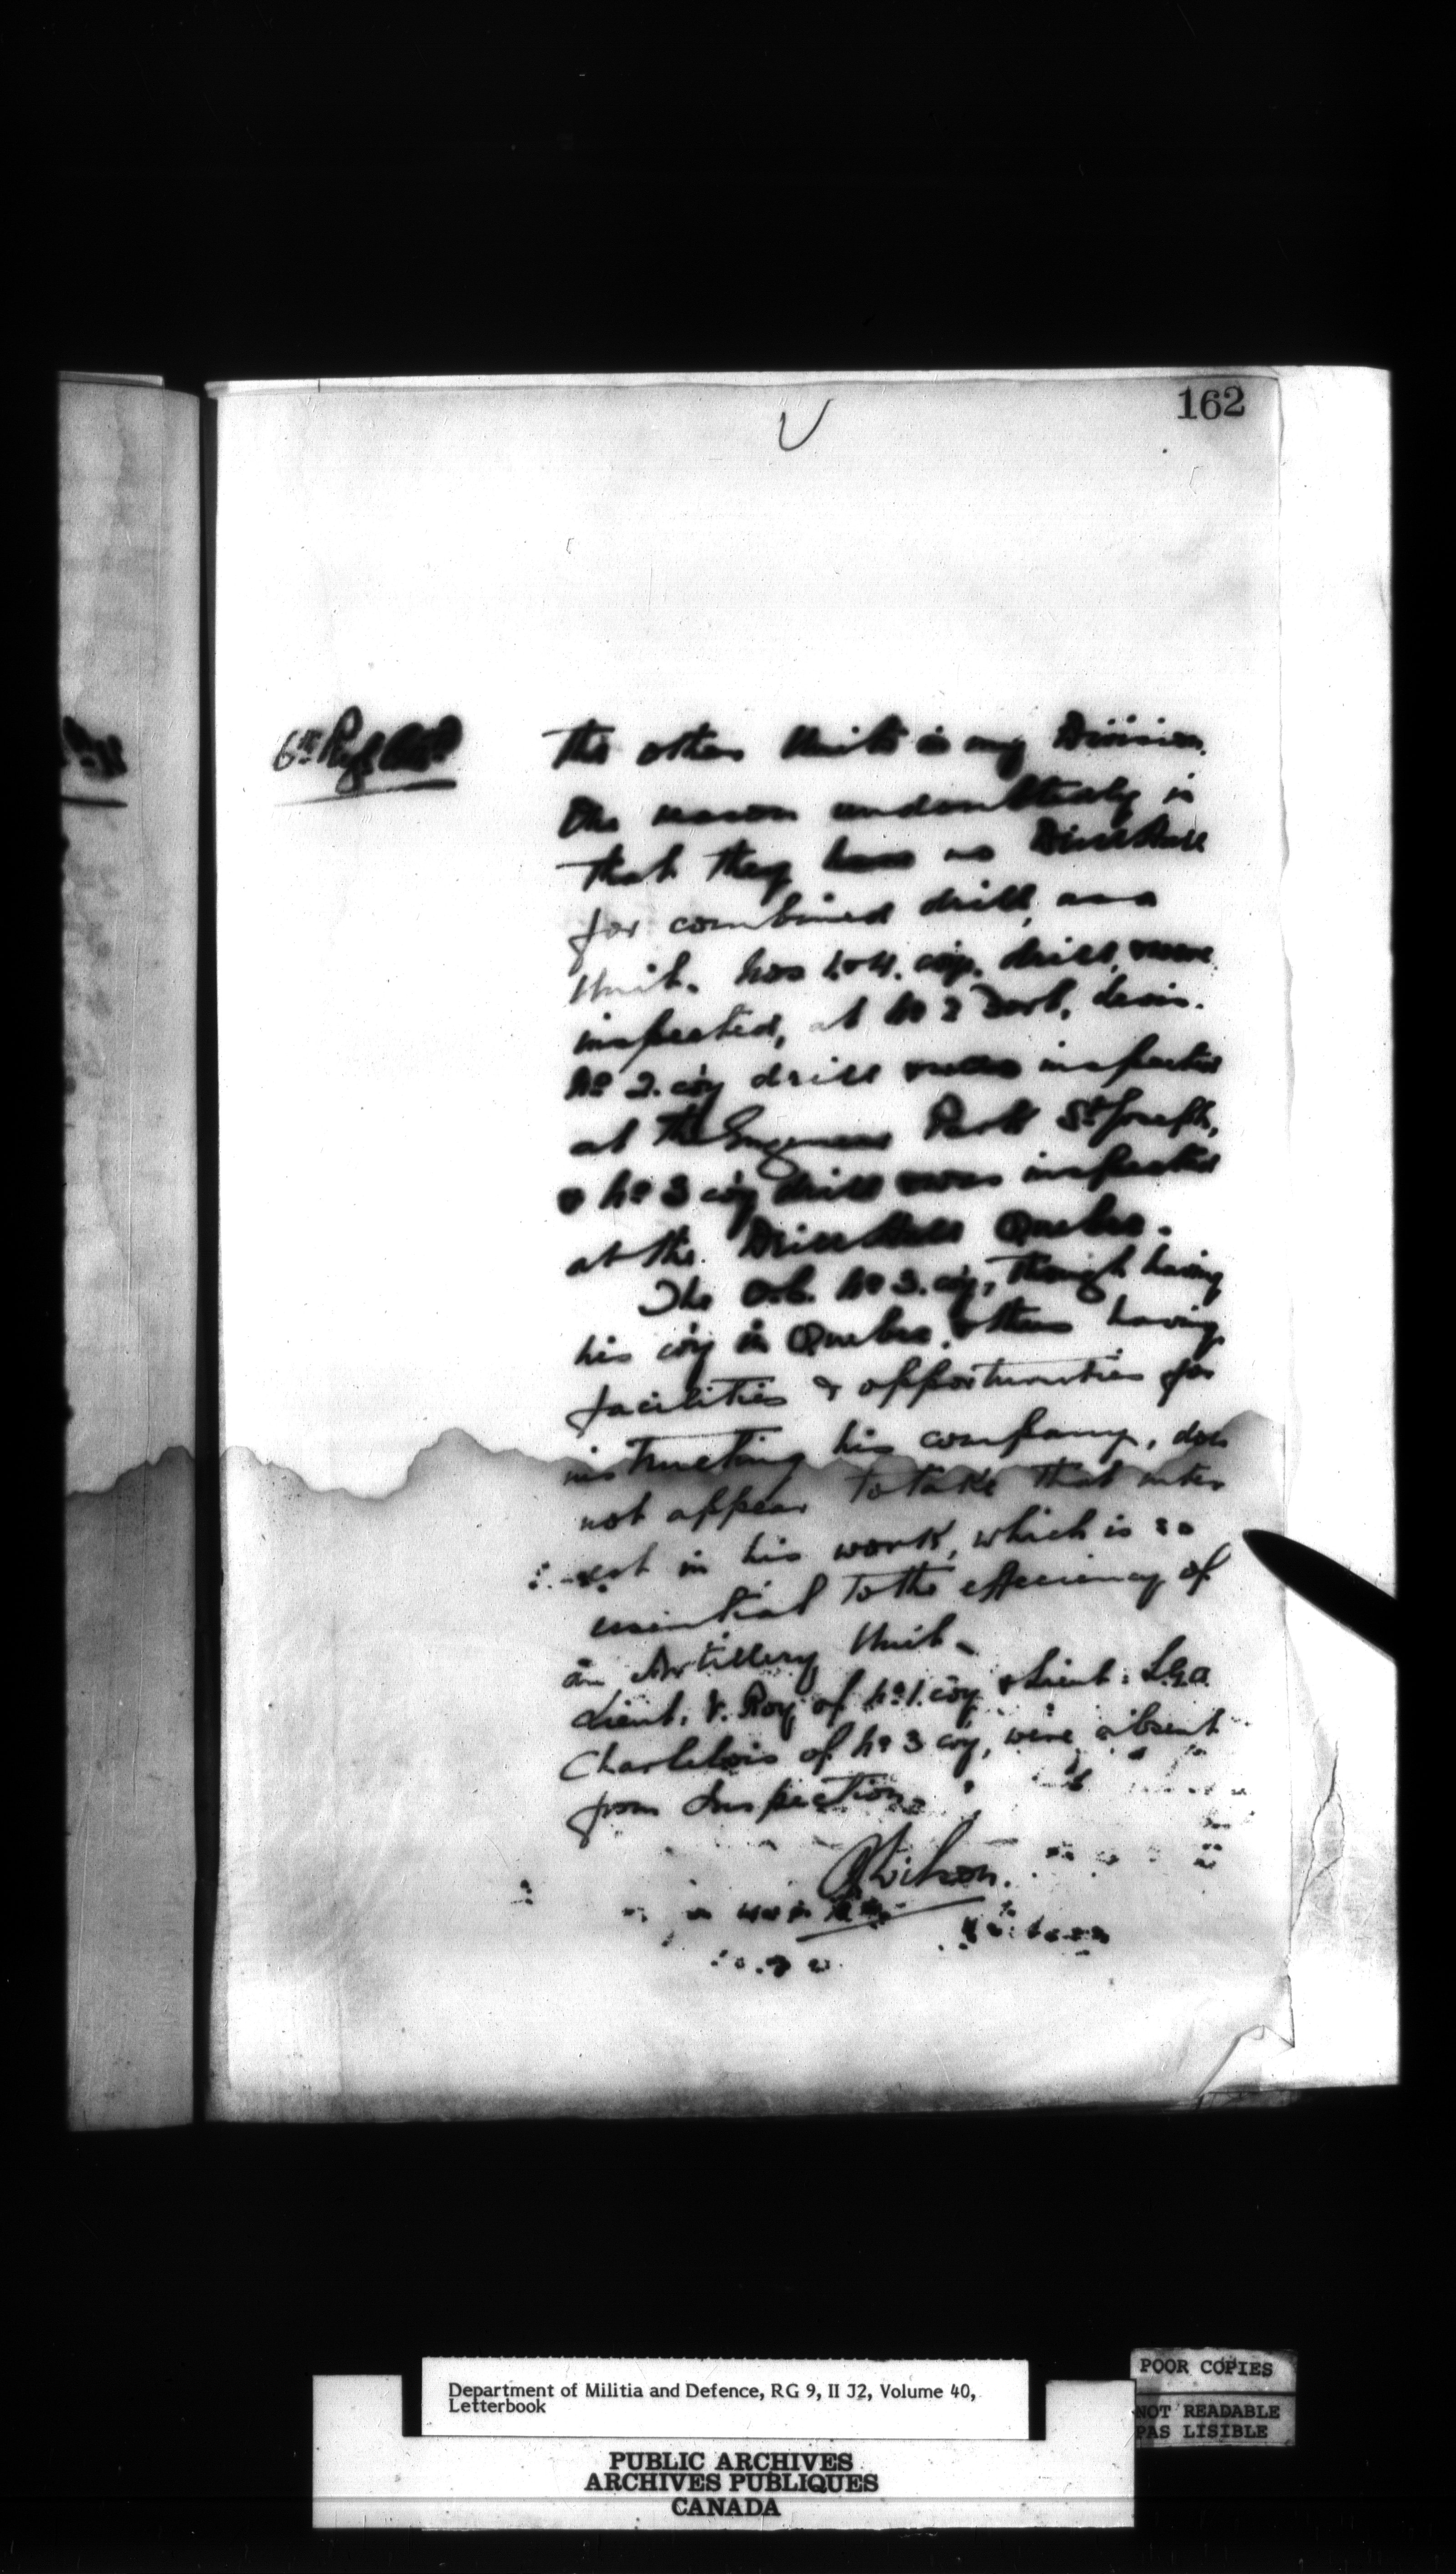 162
6th Regt
the other Units in my Division.
The reason undoubtedly is
that they have no Drill Hall
for combined drill, as a
Unit. Nos 1 & 4. coy. drill, were
inspected, at No 2 Fort, Levis.
No 2. coy drill was inspected
at the Engineer Park St Joseph,
& No 3 coy drill was inspected
at the Drill Hall Quebec.
The O.C. No 3. coy, though having
his coy in Quebec, & thus having
facilities & opportunities for
instructing his company, does
not appear to take that inter
-est in his work, which is so
essential to the efficiency of
an Artillery Unit.
Lieut. V. Roy of No 1. coy & Lieut. L.G.A.
Charlebois of No 3 coy, were absent
from Inspection.
Wilson.
Department of Militia and Defence, RG 9, II J2, Volume 40,
Letterbook
POOR COPIES
NOT READABLE
PAS LISIBLE
PUBLIC ARCHIVES
ARCHIVES PUBLIQUES
CANADA